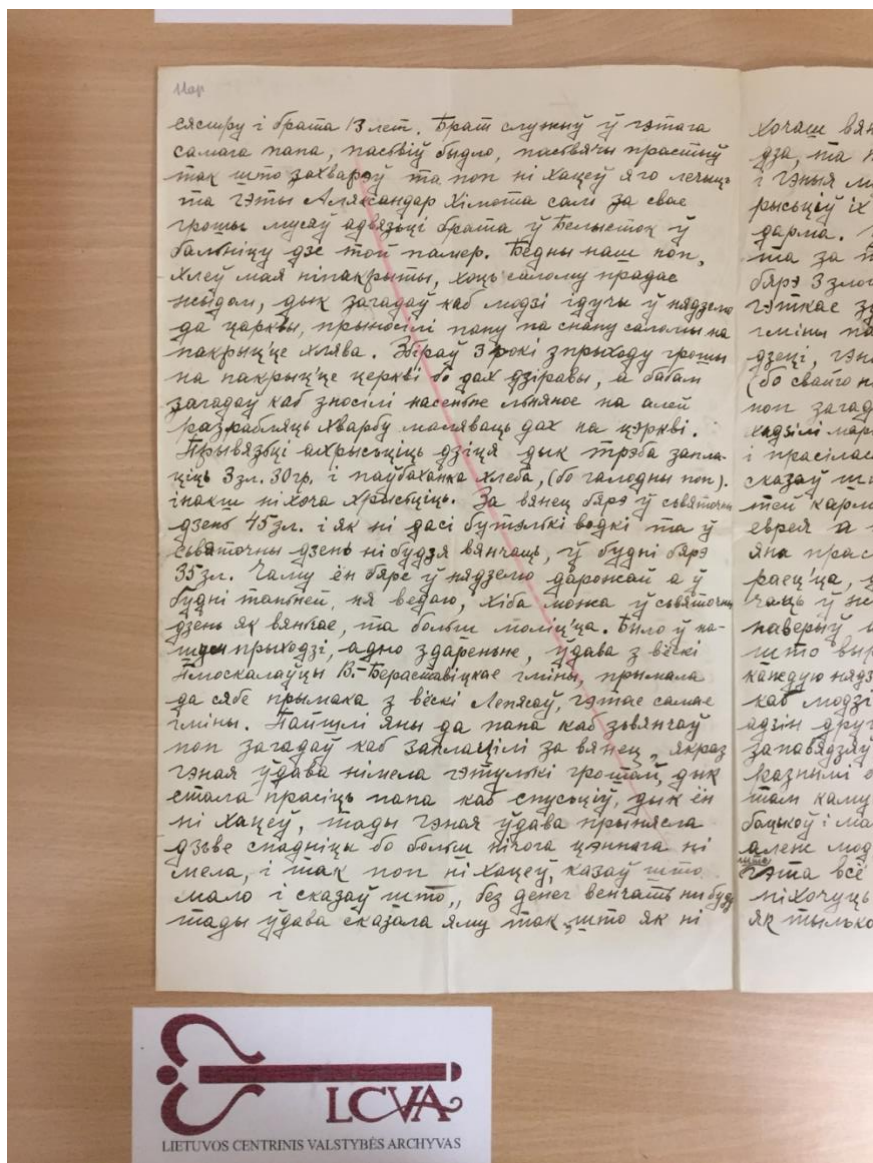 сястру і брата 13 лет. Брат служыў ў гэтага
самага папа, пасвіў быдло, пасвячы прастыў
так што захварэў та поп ні хацеў яго лечыць
та гэты Аляксандар Хімота сам за свае
грошы мусяў адвязьці брата ў Белысток ў
бальніцу дзе той памер. Бедны наш поп,
хлеў мая ніпакрыты, хоць салому прадае
жыдам, дык загадаў каб людзі ідучы ў нядзелю
да царквы, прыносілі папу па снапу саломы на
пакрыц'це хлява. Збіраў 3 рокі з прыходу грошы
на пакрыц'це церкві бо дах дзіравы, а бабам
загадаў каб зносілі насеньне льняное на алей
разрабляць хварбу маляваць дах на цэркві.
Прывязьці ахрысьціць дзіця дык трэба запла-
ціць 3 зл. 30 гр. і паўбаханка хлеба, (бо галодны поп).
інакш ні хоча хрысьціць. За вянец бярэ ў сьвяточны
дзень 45 зл. і як ні дасі бутэлькі водкі та ў
сьвяточны дзень ні будзя вянчаць, ў будні бярэ
35 зл. Чаму ён бярэ ў нядзелю даражэй а ў
будні таньней, ня ведаю, хіба можа ў сьвяточны
дзень як вянчае, та больш моліц'ца. Было ў на-
шым прыходзі, адно здареньне, ўдава з вёскі
В.-Бераставіцкае гміны, прымала
да сябе прымака з вёскі Лепясаў, гэтае самае
гміны. Пайшлі яны да папа каб зьвянчаў
поп загадаў каб заплацілі за вянец, якраз
гэная ўдава німела гэтулькі грошай, дык
стала прасіць папа каб спусьціў, дык ён
ні хацеў, тады гэная ўдава прынясла
дзьве спадніцы бо больш нічога цэннага ні
мела, і так поп ні хацеў, казаў што
мало і сказаў што „без денег венчать ни буду
тады ўдава сказала яму так „што як ні
хочаш вян
дза, та
і гэныя
рысьціў іх
дарма.
та за
бярэ 3 злот
гэткае
гміны
дзеці, гэн
(бо свайго
поп загад
хадзілі
і прасілас
сказаў
тей карм
еврея а
яна прас
раец'ца,
чаць ў не
паверыў
што
каждую нядз
каб людзі
адзін друг
запавядзяў
казнымі
там каму
бацькоў і ма
алеж люд
гэта всё
ніхочуць
як тылько
LCVA
LIETUVOS CENTRINIS VALSTYBĖS ARCHYVAS